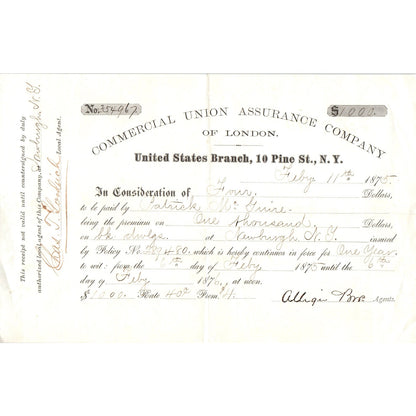 No. 354967 $1000.
COMMERCIAL UNION ASSURANCE COMPANY
OF LONDON.
United States Branch, 10 Pine St., N. Y.
Feby 11th 1875
In Consideration of Four Dollars,
to be paid by Patrick McGuire
being the premium on One Thousand Dollars,
on bk dwlgs. at Newburgh N.Y. insured
by Policy No. 480, which is hereby continues in force for One Year
to wit: from the 6th day of Feby 1875 until the 6th
day of Feby 1876, at noon.
$1000. Rate 40¢ Prem. $4. Agents.
This receipt not valid until countersigned by duly
authorized local agent of the Company, at Newburgh N.Y.
Chas. T. Local Agent.